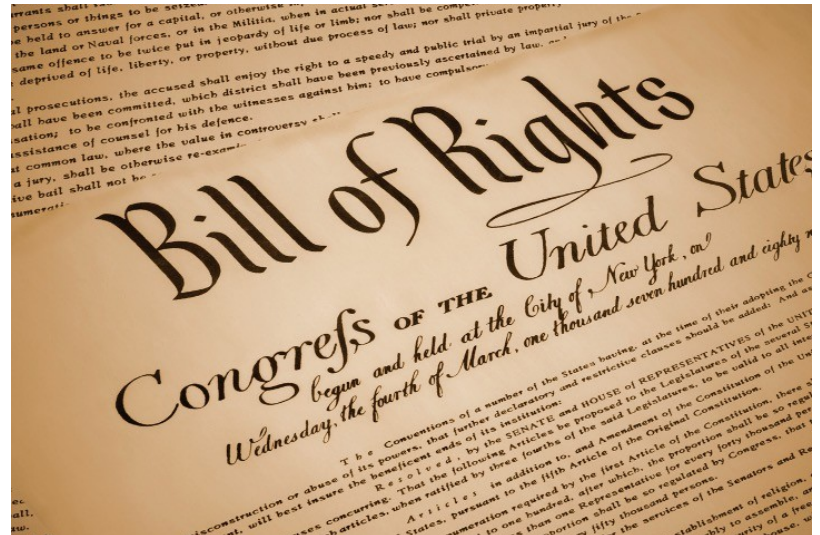 rrants shall
persons or things to be seized.
be held to answer for a capital, or otherwise
the land or Naval forces, or in the Militia, when in actual
same offence to be twice put in jeopardy of life or limb; nor shall be
deprived of life, liberty, or property, without due process of law; nor shall private property
al prosecutions, the accused shall enjoy the right to a speedy and public trial by an impartial jury of the
all have been committed, which district shall have been previously ascertained by law,
sation; to be confronted with the witnesses against him; to have compulsory
ssistance of counsel for his defence.
t common law, where the value in controversy
a jury, shall be otherwise re-exami
ive bail shall not be
numerati
Bill of Rights
Congreſs OF THE United States
begun and held at the City of New York, on
Wednesday, the fourth of March, one thousand seven hundred and eighty n
The Conventions of a number of the States having, at the time of their adopting the C
isconstruction or abuse of its powers, that further declaratory and restrictive clauses should be added: And as
nt, will best insure the beneficent ends of its institution:
Resolved, by the SENATE and HOUSE of REPRESENTATIVES of the UNIT
uses concurring. That the following Articles be proposed to the Legislatures of the several S
articles, when ratified by three fourths of the said Legislatures, to be valid to all inte
Articles in addition to, and Amendment of the Constitution of the Uni
States, pursuant to the fifth Article of the Original Constitution.
numeration required by the first Article of the Constitution, there s
to one hundred, after which, the proportion shall be so regul
than one Representative for every forty thousand per
portion shall be so regulated by Congress, that
fifty thousand persons.
for the services of the Senators and Re
establishment of religion,
ably to assemble, an
urity of a free
house, w
ec.
all
aw.